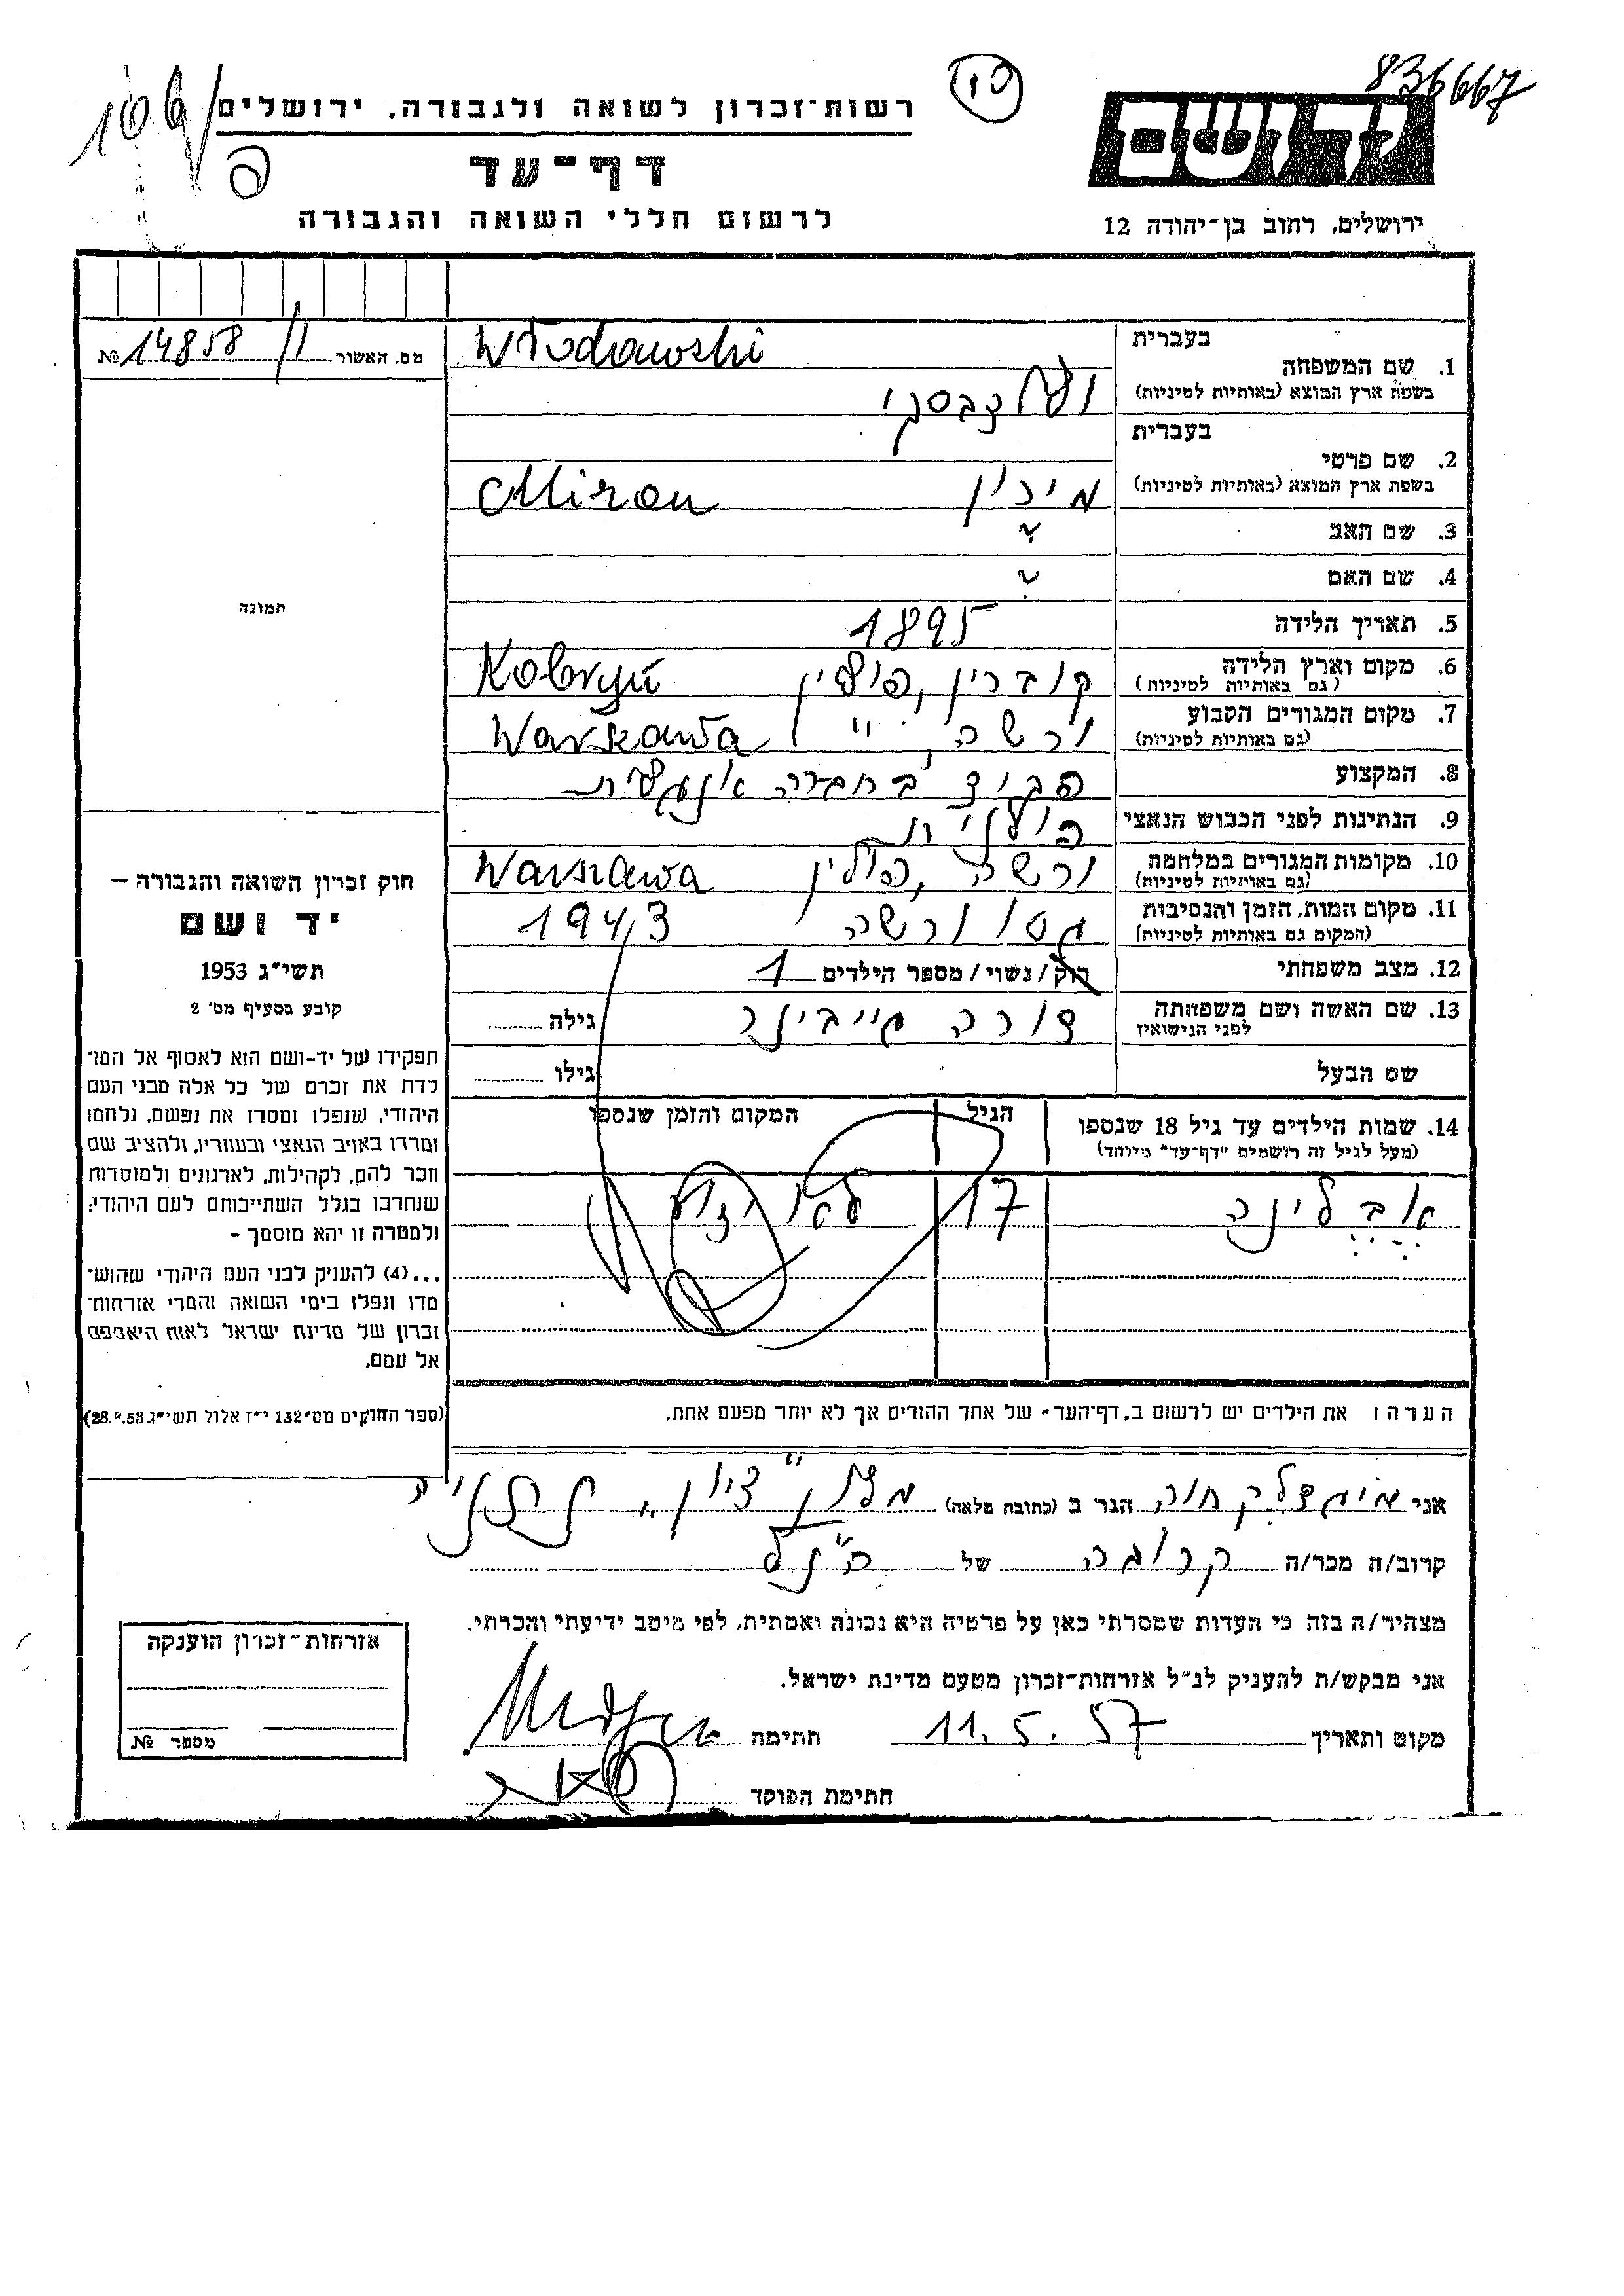 836667
10
ידושם
ירושלים, רחוב בן־יהודה 12
רשות־זכרון לשואה ולגבורה, ירושלים
דף־עד
לרשום חללי השואה והגבורה
מס. האשור № 14858
1. שם המשפחה בעברית
בשפת ארץ המוצא (באותיות לטיניות)
Włodawski
2. שם פרטי בעברית
בשפת ארץ המוצא (באותיות לטיניות)
מירון Miron
3. שם האב ?
4. שם האם ?
5. תאריך הלידה 1895
6. מקום וארץ הלידה קוברין, פולין Kobryń
(גם באותיות לטיניות)
7. מקום המגורים הקבוע ורשה, " Warszawa
(גם באותיות לטיניות)
8. המקצוע פקיד בחברה אנגלית
9. הנתינות לפני הכבוש הנאצי פולנית
10. מקומות המגורים במלחמה ורשה, פולין Warszawa
(גם באותיות לטיניות)
11. מקום המות, הזמן והנסיבות גטו ורשה 1943
(המקום גם באותיות לטיניות)
12. מצב משפחתי רוק/נשוי/מספר הילדים 1
13. שם האשה ושם משפחתה דורה גייבינר גילה
לפני הנישואין
שם הבעל גילו
14. שמות הילדים עד גיל 18 שנספו הגיל המקום והזמן שנספו
(מעל לגיל זה רושמים "דף־עד" מיוחד)
אבלינה 17 לא ידוע
הערה: את הילדים יש לרשום ב„דף־העד" של אחד ההורים אך לא יותר מפעם אחת.
תמונה
חוק זכרון השואה והגבורה –
יד ושם
תשי״ג 1953
קובע בסעיף מס׳ 2
תפקידו של יד-ושם הוא לאסוף אל המו־
לדת את זכרם של כל אלה מבני העם
היהודי, שנפלו ומסרו את נפשם, נלחמו
ומרדו באויב הנאצי ובעוזריו, ולהציב שם
וזכר להם, לקהילות, לארגונים ולמוסדות
שנחרבו בגלל השתייכותם לעם היהודי;
ולמטרה זו יהא מוסמך –
...(4) להעניק לבני העם היהודי שהוש־
מדו ונפלו בימי השואה והמרי אזרחות־
זכרון של מדינת ישראל לאות היאספם
אל עמם.
(ספר החוקים מס׳ 132 י״ז אלול תשי״ג 28.8.53)
אני מיגדלק חוה הגר ב (כתובת מלאה) מלון "ציון", נתניה
קרוב/ה מכר/ה קרובה של הנ"ל
מצהיר/ה בזה כי העדות שמסרתי כאן על פרטיה היא נכונה ואמתית, לפי מיטב ידיעתי והכרתי.
אני מבקש/ת להעניק לנ״ל אזרחות־זכרון מטעם מדינת ישראל.
מקום ותאריך 11.5.57 חתימה
חתימת הפוקד
אזרחות־זכרון הוענקה
מספר №